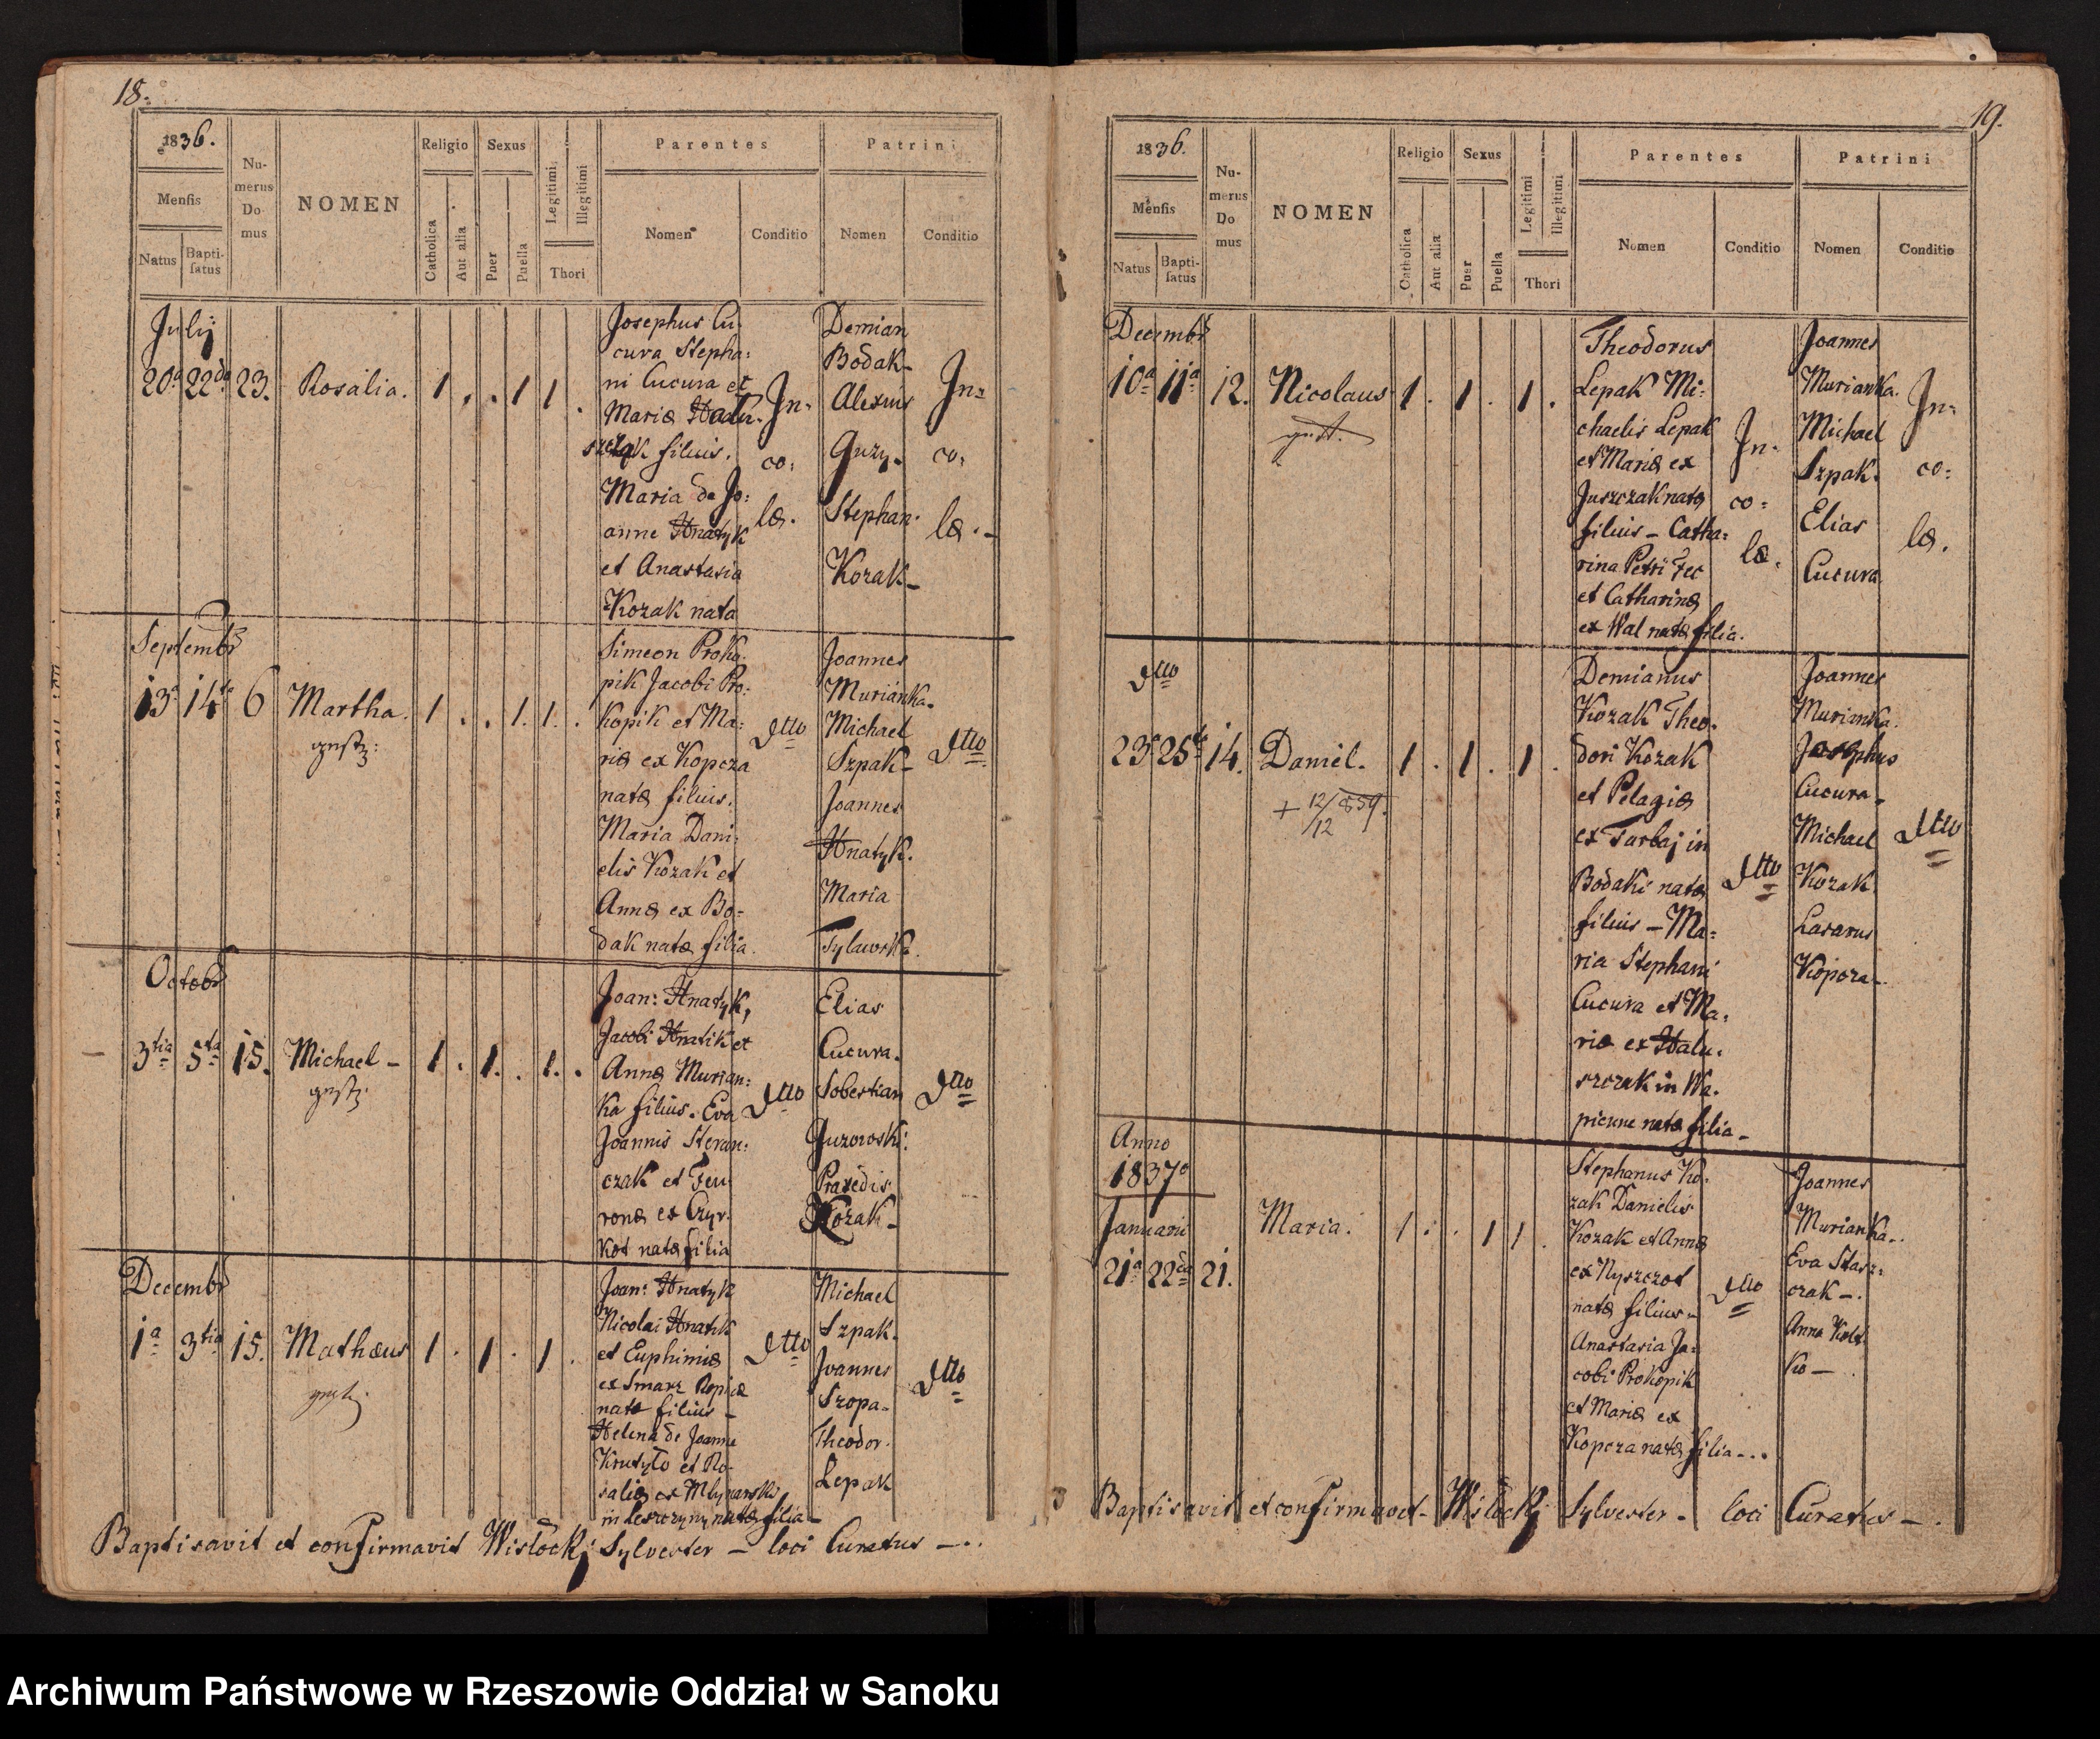 18.
1836.
Mensis
Natus
Bapti-
satus
Nu-
merus
Do
mus
NOMEN
Religio
Catholica
Aut alia
Sexus
Puer
Puella
Legitimi
Illegitimi
Thori
Parentes
Nomen
Conditio
Patrini
Nomen
Conditio
Julij
20a 22da 23. Rosalia. 1 . . 1 1 .
Josephus Cu-
cura Stepha:
ni Cucura et
Mariæ Halu-
szczak filius.
Maria de Jo:
anne Hnatyk
et Anastasia
Kozak nata
In:
co:
læ.
Demian
Bodak-
Alexius
Guzy.
Stephan.
Kozak-
In:
co:
læ.-
Septembr
13a 14ta 6 Martha. 1 . . 1. 1. .
Simeon Proko-
pik Jacobi Pro:
kopik et Ma:
riæ ex Kopcza
natæ filius.
Maria Dani:
elis Kozak et
Annæ ex Bo-
dak natæ filia.
Dtto
Joannes
Murianka.
Michael
Szpak-
Joannes
Hnatyk.
Maria
Tylawska.
Dtto
Octobr
3tia 5ta 15. Michael - 1 . 1. . 1. .
Joan: Hnatyk,
Jacobi Hnatik et
Annæ Murian:
ka filius. Eva
Joannis Steran:
czak et Feu-
ronæ ex Czyr-
kot natæ filia
Dtto
Elias
Cucura.
Sobestian
Guzowski:
Praxedis
Kozak-
Dtto
Decembr
1a 3tia 15. Mathæus 1 . 1 . 1 .
Joan: Hnatyk
Nicolai Hnatik
et Euphimiæ
ex Smarz Ropicæ
natæ filius -
Helena de Joanne
Krutyło et Ro-
saliæ ex Młynarski
in Leszczyny natæ filia -
Dtto
Michael
Szpak.
Joannes
Szopa-
Theodor.
Lepak
Dtto
Baptisavit et confirmavit Wisłocki Sylvester - loci Curatus -..
19.
1836.
Mensis
Natus
Bapti-
satus
Nu-
merus
Do
mus
NOMEN
Religio
Catholica
Aut alia
Sexus
Puer
Puella
Legitimi
Illegitimi
Thori
Parentes
Nomen
Conditio
Patrini
Nomen
Conditio
Decembr
10a 11a 12. Nicolaus 1 . 1 . 1 .
Theodorus
Lepak Mi:
chaelis Lepak
et Mariæ ex
Juszczak natæ
filius - Catha:
rina Petri Fec
et Catharinæ
ex Wal natæ filia.
In-
co:
læ.
Joannes
Murianka.
Michael
Szpak.
Elias
Cucura
In:
co:
læ.
Dtto
23a 25ta 14. Daniel. 1 . 1 . 1 .
+ 12/12 859.
Demianus
Kozak Theo-
dori Kozak
et Pelagiæ
ex Tarbaj in
Bodaki natæ
filius - Ma:
ria Stephani
Cucura et Ma:
riæ ex Halu:
szczak in Wa-
pienne natæ filia -
Dtto
Joannes
Murianka.
Josephus
Cucura-
Michael
Kozak
Lazarus
Kopcza-
Dtto
Anno
1837o
Januarii
21a 22da 21. Maria. 1 . . 1 1 .
Stephanus Ko-
zak Danielis
Kozak et Annæ
ex Nyszczot
natæ filius -
Anastasia Ja:
cobi Prokopik
et Mariæ ex
Kopcza natæ filia -..
Dtto
Joannes
Murianka..
Eva Stasz:
czak -.
Anna
ko -
Baptisavit et confirmavit - Wisłocki Sylvester - loci Curatus -.
Archiwum Państwowe w Rzeszowie Oddział w Sanoku